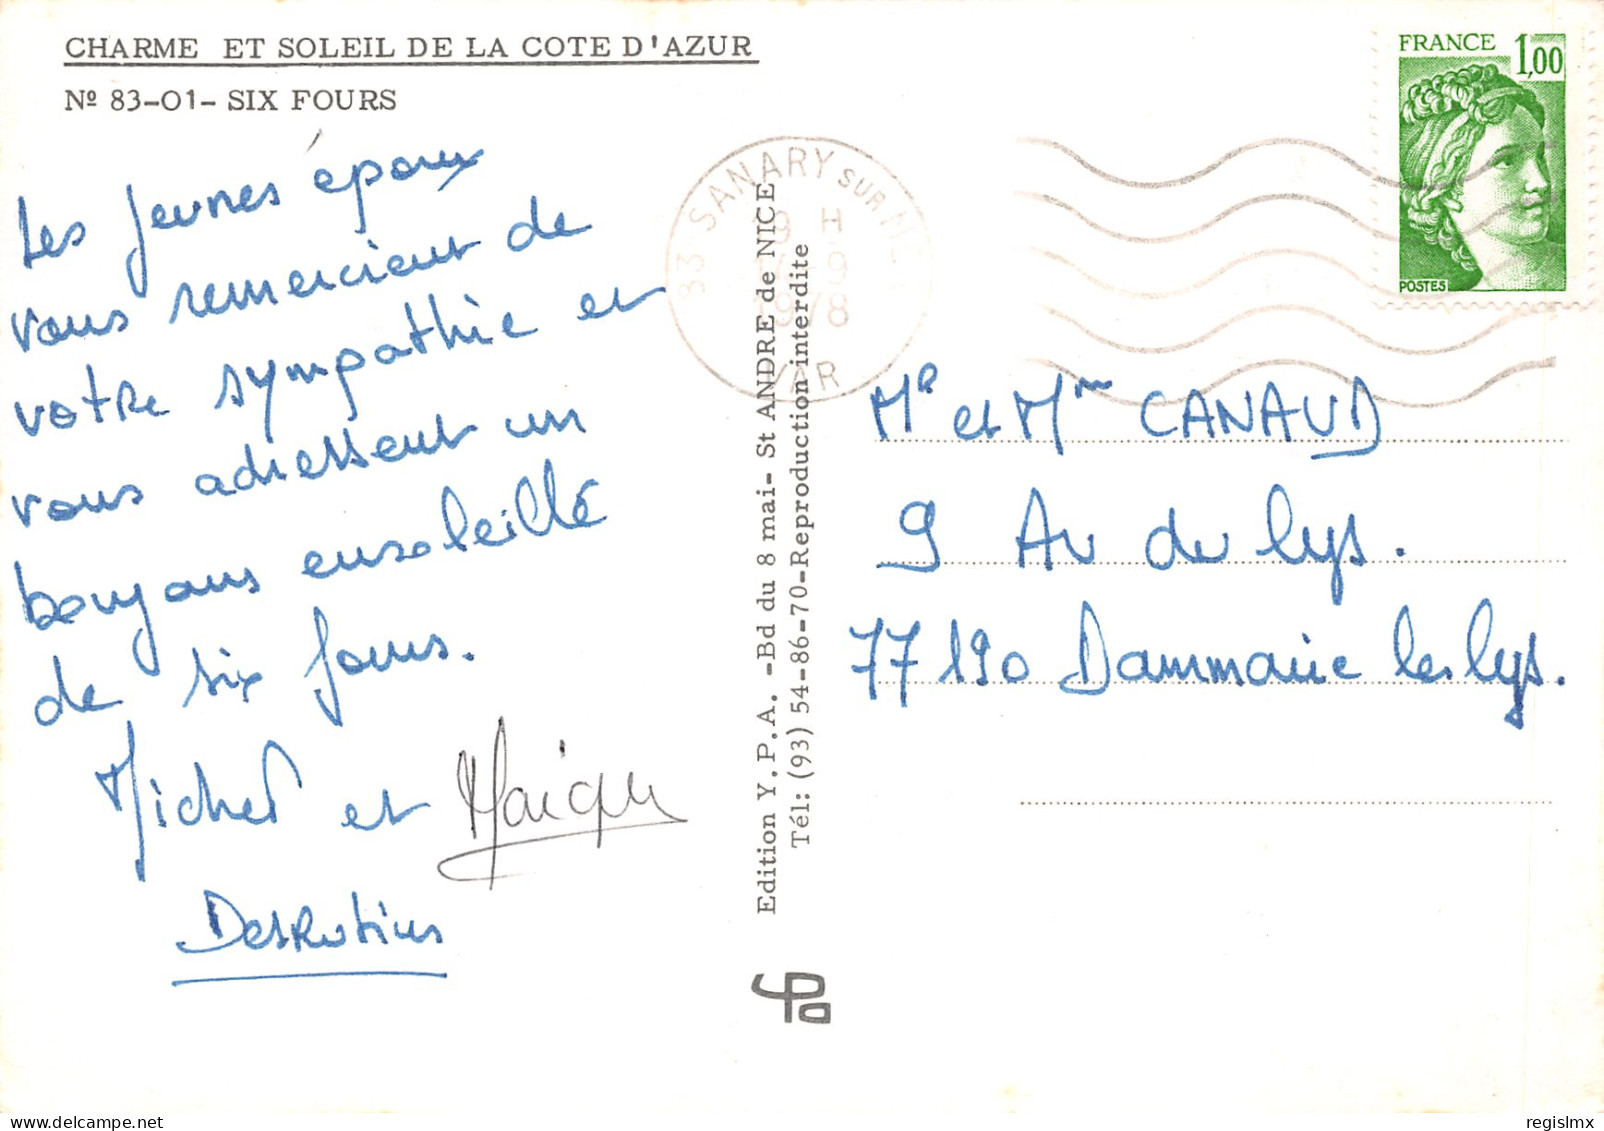 CHARME ET SOLEIL DE LA COTE D'AZUR
Nº 83-01- SIX FOURS
Les jeunes époux
vous remercient de
votre sympathie et
vous adressent un
bonjour ensoleillé
de six fours.
Michel et
83 SANARY SUR
H
9
1978
VAR
Edition Y.P.A. -Bd du 8 mai- St ANDRE de NICE
Tél: (93) 54-86-70-Reproduction interdite
FRANCE 1,00
POSTES
Mr et Mme CANAUD
9 Av du lys.
77190 Dammarie les lys.
regislmx